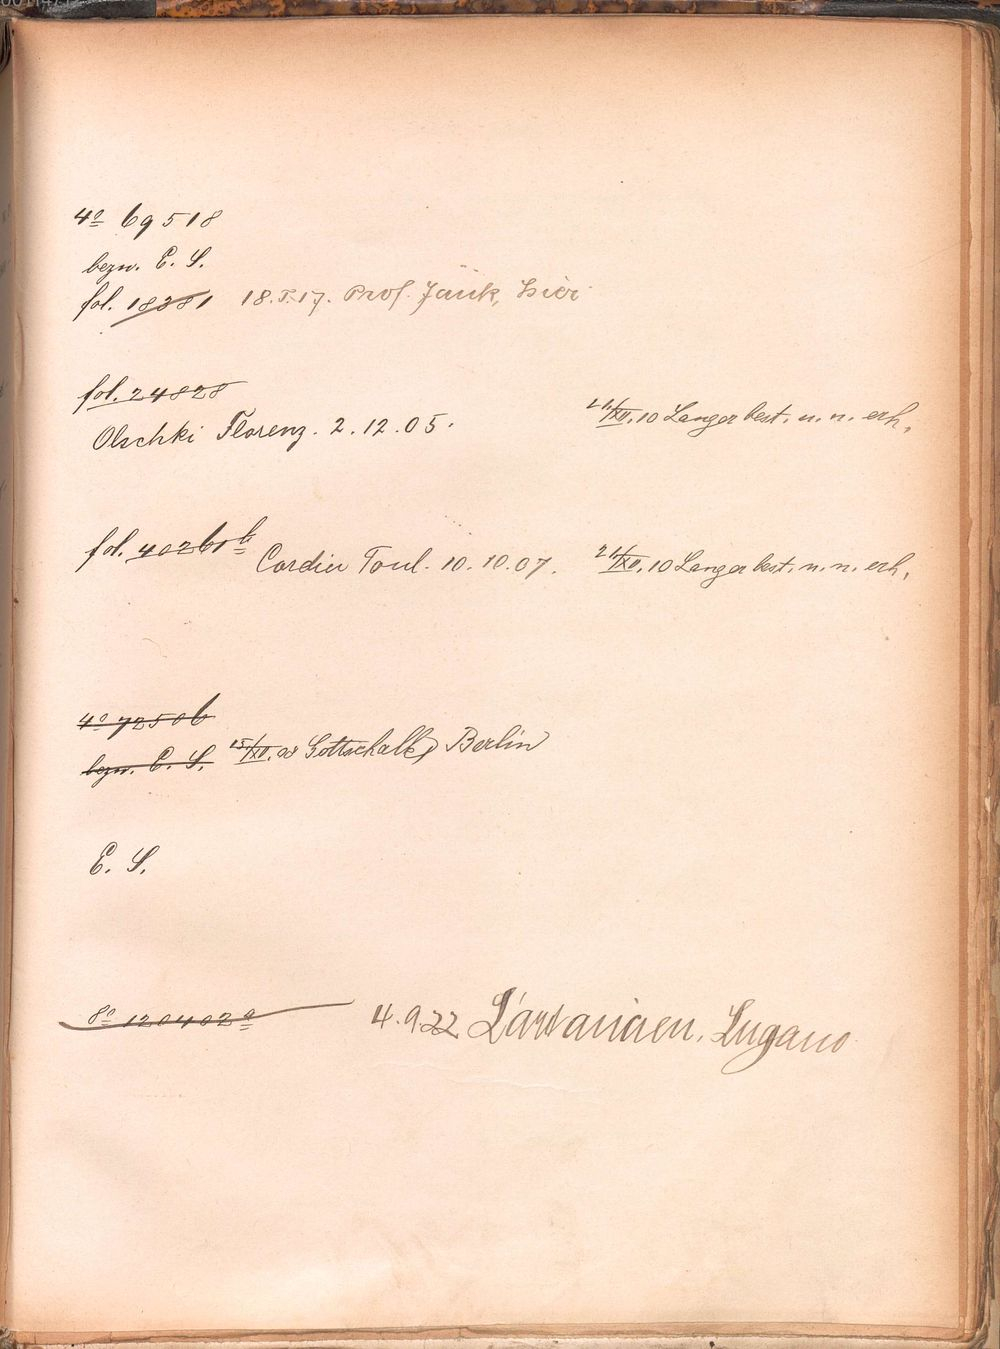 4º 69518
bezw. E. S.
fol. 18381 18.5.17. Prof. Jaûk, hier
fol. 24828
Olschki Florenz. 2.12.05. 21/XII.10 Langer best. u. n. erh.
fol. 40261 b
Cordier Toul. 10.10.07. 21/XII.10 Langer best. u. n. erh.
4º 7250b
bezw. E. S. 15/XII. 08 Gottschalk, Berlin
E. S.
8º 120402 a 4.9.22 Lugano